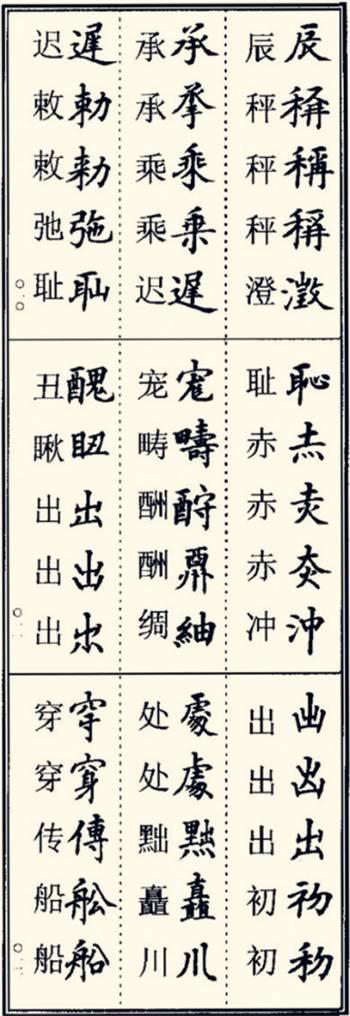 辰稱稱稱澂
辰秤秤秤澄
承乗乗遲
承承乘乘迟
遲勑勑弛
迟敕敕弛耻
恥沖
耻赤赤赤冲
疇酧紬
宠畴酬酬绸
醜出出
丑瞅出出出
出初
出出出初初
處處黜矗川
处处黜矗川
穿穿傳舩船
穿穿传船船